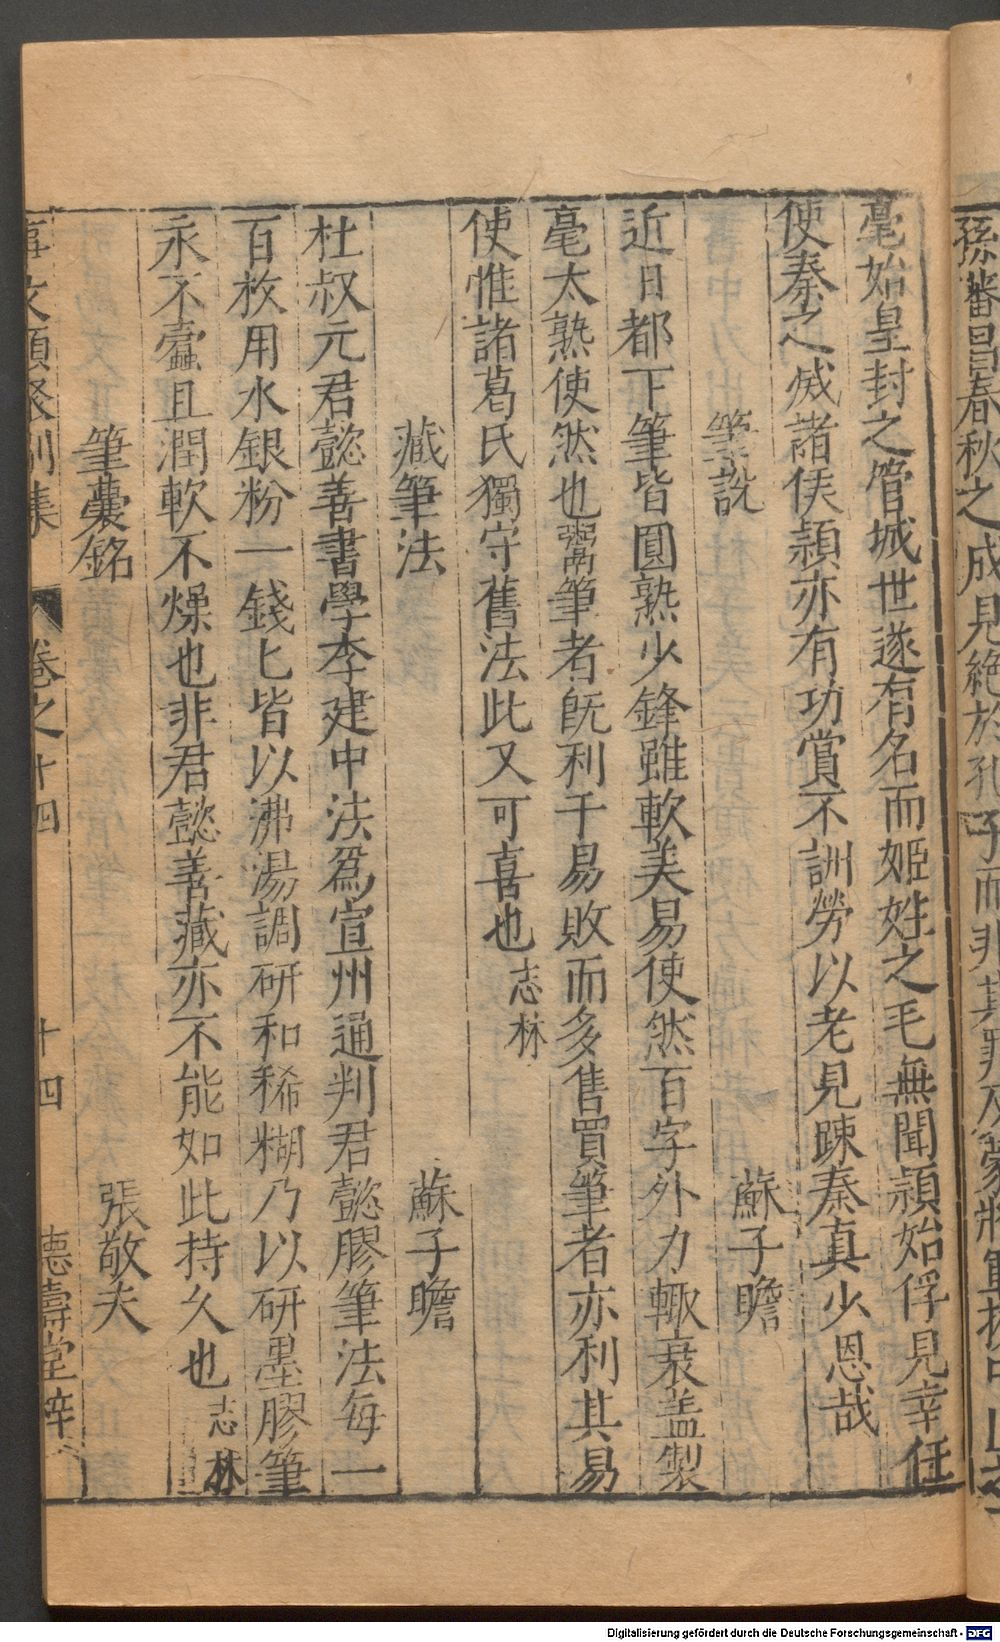 孫蕃昌春秋之成見絶於孔子而非其罪及蒙將軍拔中山之
毫始皇封之管城世遂有名而姬姓之毛無聞頴始俘見幸任
使秦之滅諸侯頴亦有功賞不訓勞以老見踈秦真少恩哉
筆說 蘇子瞻
近日都下筆皆圓熟少鋒雖軟美易使然百字外力輙衰盖製
毫太熟使然也鬻筆者旣利于易敗而多售買筆者亦利其易
使惟諸葛氏獨守舊法此又可喜也 志林
藏筆法 蘇子瞻
杜叔元君懿善書學李建中法爲宣州通判君懿膠筆法每一
百枚用水銀粉一錢匕皆以沸湯調研和稀糊乃以研墨膠筆
永不蠹且潤軟不燥也非君懿善藏亦不能如此持久也 志林
筆囊銘 張敬夫
事文類聚別集 卷之十四 十四 德壽堂梓
Digitalisierung gefördert durch die Deutsche Forschungsgemeinschaft - DFG